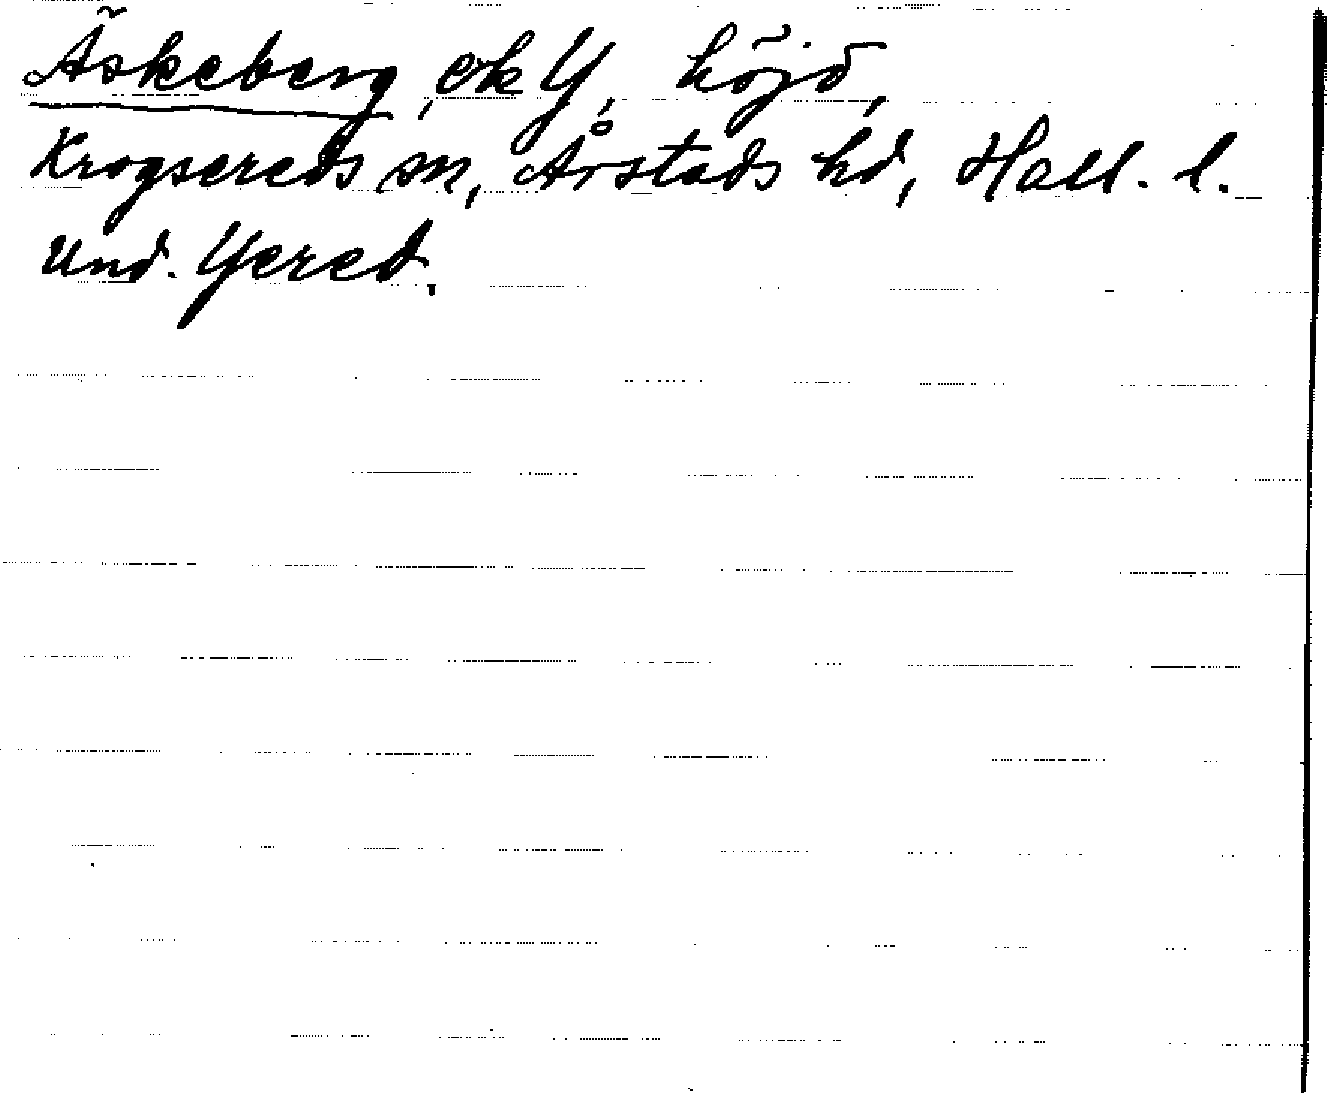 Äskeberg, ek Y, höjd,
Krogsereds sn, Årstads hd, Hall. l.
Und. Yered.